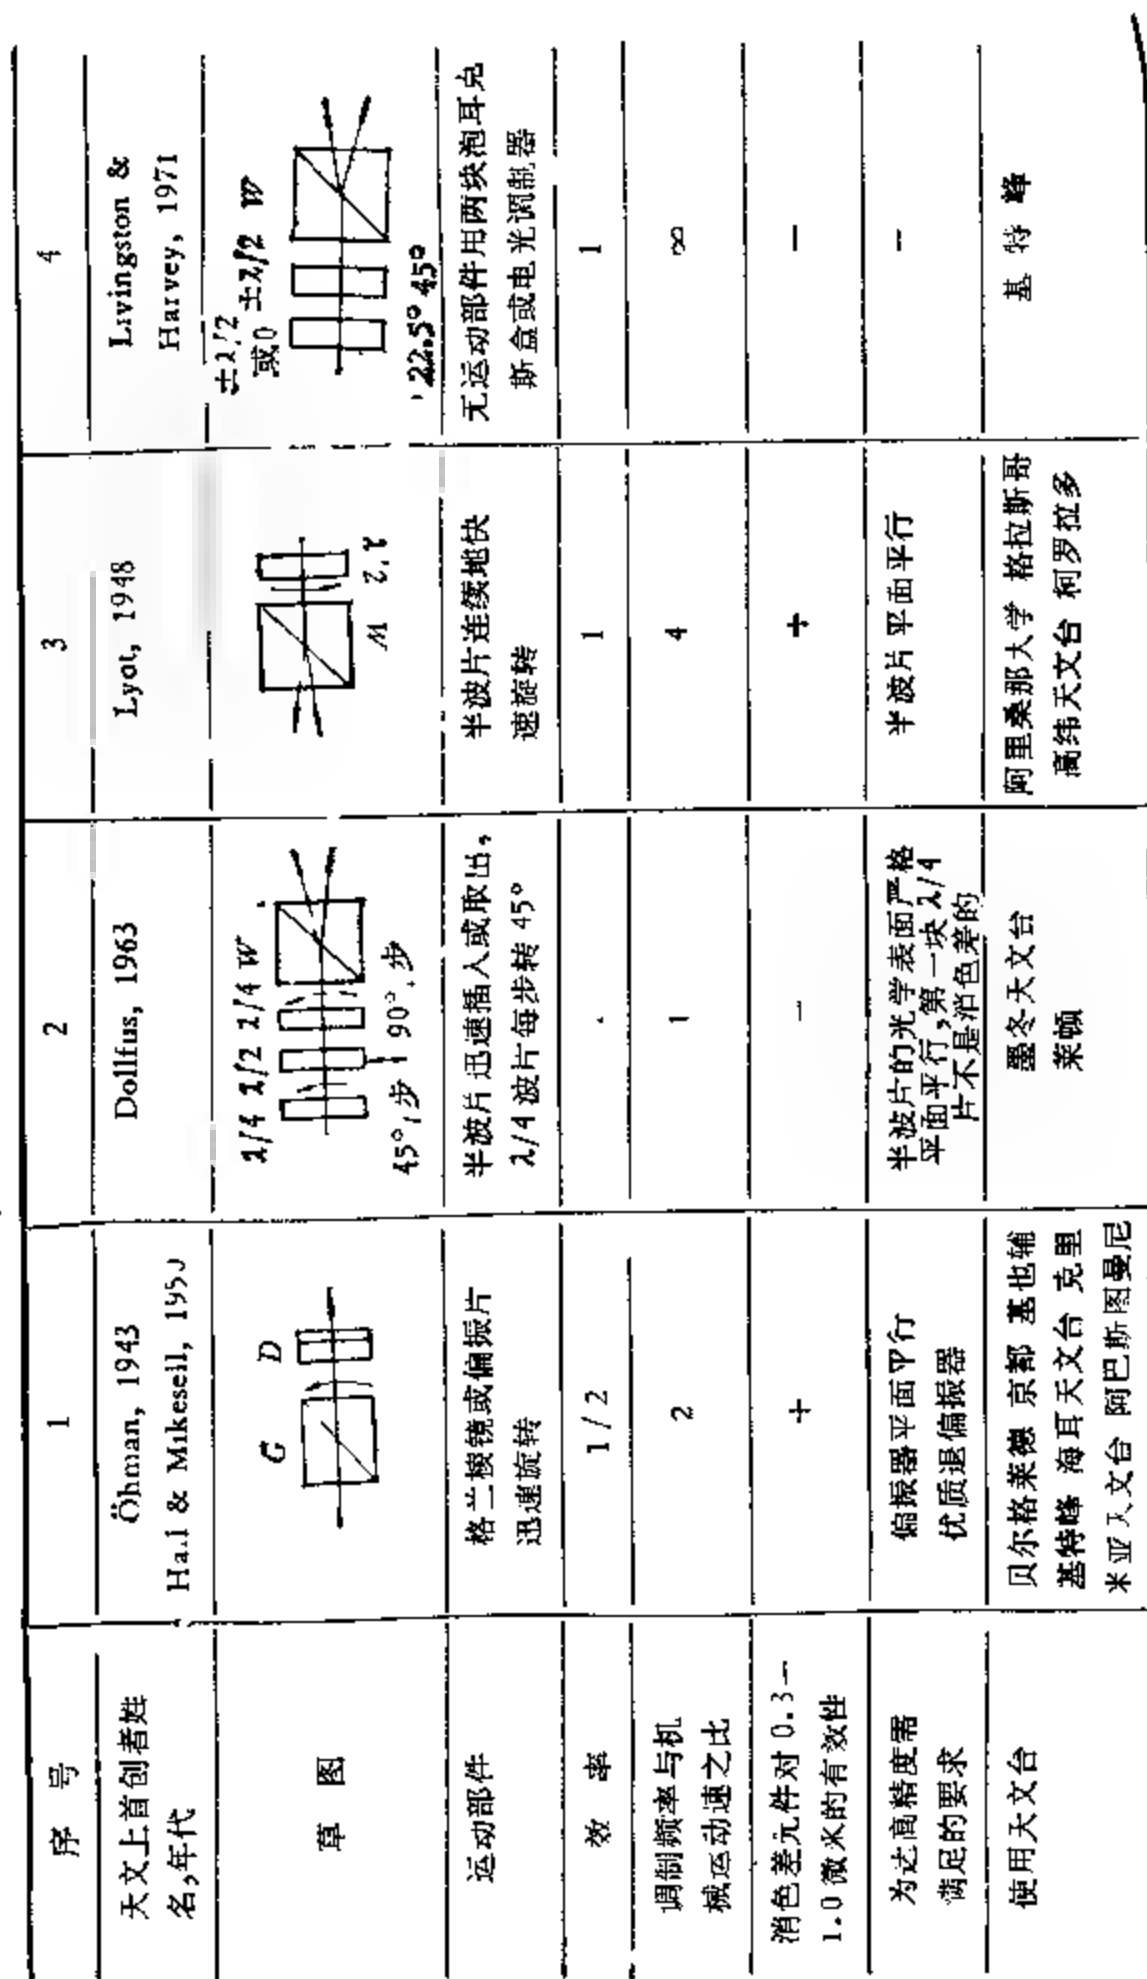 序 号
1
2
3
4
天文上首创者姓
名,年代
Öhman, 1943
Hall & Mikesell, 1950
Dollfus, 1963
Lyot, 1948
Livingston &
Harvey, 1971
草 图
G D
λ/4 λ/2 λ/4 W
45°/步 90°/步
W
±λ/2
或0 ±λ/2 W
22.5° 45°
运动部件
格兰棱镜或偏振片
迅速旋转
半波片迅速插入或取出,
λ/4波片每步转45°
半波片连续地快
速旋转
无运动部件用两块泡耳克
斯盒或电光调制器
效 率
1/2
1
1
调制频率与机
械运动速之比
2
1
4
∞
消色差元件对0.3—
1.0微米的有效性
+
—
+
—
为达高精度需
满足的要求
偏振器平面平行
优质退偏振器
半波片的光学表面严格
平面平行,第一块λ/4
片不是消色差的
半波片平面平行
—
使用天文台
贝尔格莱德 京都 基也辅
基特峰 海耳天文台 克里
米亚天文台 阿巴斯图曼尼
墨冬天文台
莱顿
阿里桑那大学 格拉斯哥
高纬天文台 柯罗拉多
基特峰